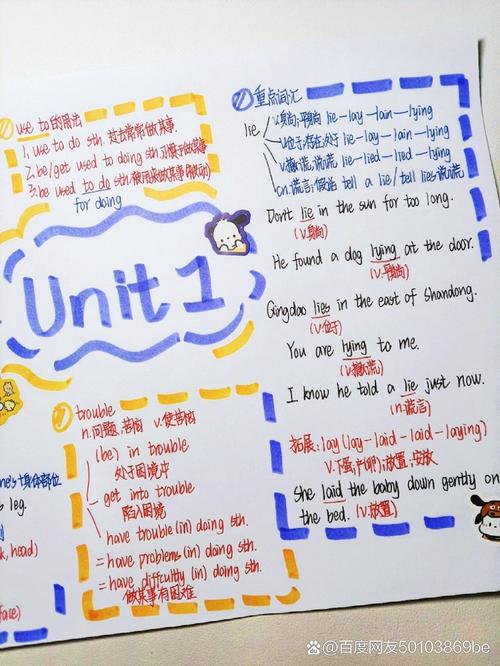 ① use to的用法
1, use to do sth. 过去常常做某事.
2. be/get used to doing sth 习惯于做某事
3. be used to do sth. 被用来做某事(被动)
for doing
Unit 1
trouble
n.问题,苦恼 v.使苦恼
(be) in trouble
处于困境中
get into trouble
陷入困境
have trouble (in) doing sth.
= have problems (in) doing sth.
= have difficulty (in) doing sth.
做某事有困难
身体部位
leg.
k, head)
face)
重点词汇
lie
v.躺;平躺 lie—lay—lain—lying
v.位于;存在;处于 lie—lay—lain—lying
v.撒谎,说谎 lie—lied—lied—lying
n.谎言;假话 tell a lie/tell lies 说谎
Don't lie in the sun for too long.
(v.躺)
He found a dog lying at the door.
(v.平躺)
Qingdao lies in the east of Shandong.
(v.位于)
You are lying to me.
(v.撒谎)
I know he told a lie just now.
(n.谎言)
拓展: lay (lay-laid-laid-laying)
v.下蛋(产卵);放置;安放
She laid the baby down gently on
the bed. (v.放置)
@百度网友50103869be